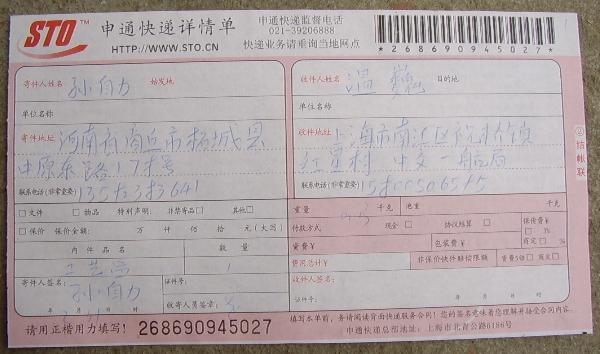 STO TM 申通快递详情单
HTTP://WWW.STO.CN
申通快递监督电话
021-39206888
快递业务请垂询当地网点
*268690945027*
寄件人姓名 孙自力 始发地
单位名称
寄件地址 河南省商丘市柘城县
中原东路17号
联系电话(非常重要)
□文件 □物品 特别声明: 非禁寄品□ 其他□
□保价 保价金额: 万 仟 佰 拾 元(大写)
内件品名 数量
工艺品 1
寄件人签名: 证件号:
孙自力
年 月 日 时 收寄人员签章:
收件人姓名 温 目的地
单位名称
收件地址 上海市南汇区 镇
红星村 中交一航局
联系电话(非常重要)
重量 千克 泡重 千克
付款方式 现金□ 协议结算□ 保价费¥
□1%
资费¥ 包装费¥ □商定□%
费用总计¥ 非保价快件赔偿限额 资费5倍□ 商定□
收件人签名:
证件号: 年 月 日 时
①结帐联
请用正楷用力填写! 268690945027
填写本单前,务请阅读背面快递服务合同!您的签名意味着您理解并接受合同
申通快递总部地址:上海市北青公路6186号